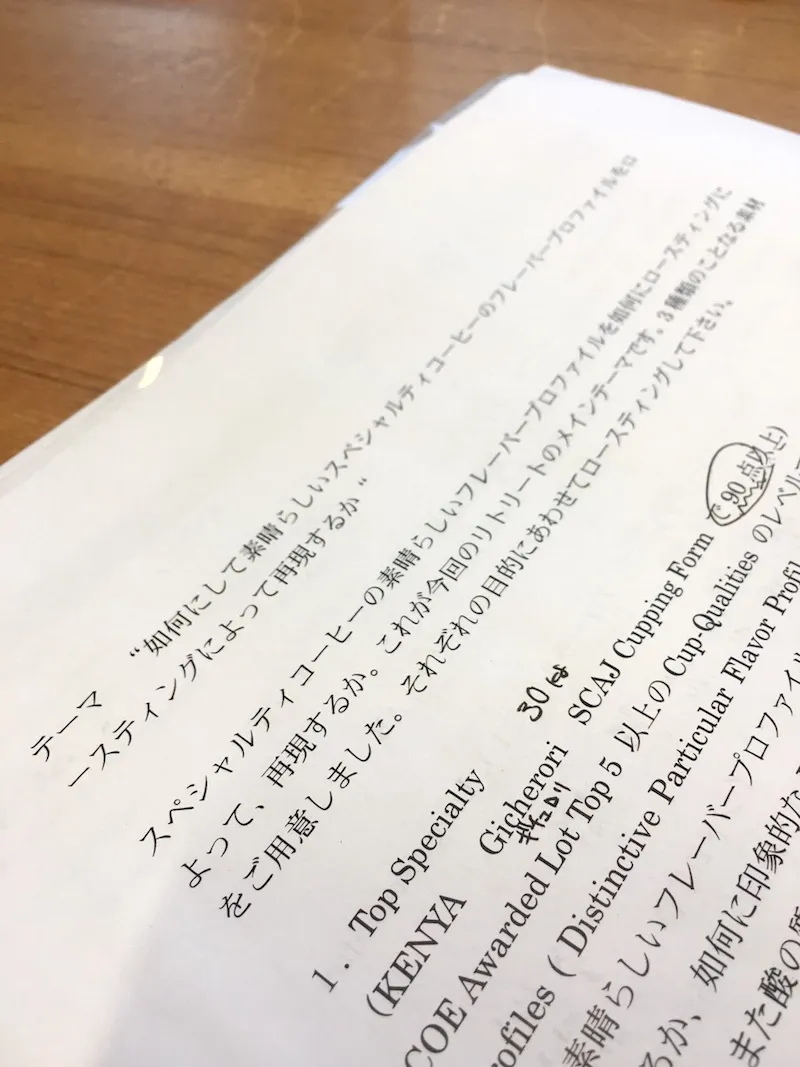 テーマ　“如何にして素晴らしいスペシャルティコーヒーのフレーバープロファイルをロ
ースティングによって再現するか“
スペシャルティコーヒーの素晴らしいフレーバープロファイルを如何にロースティングに
よって、再現するか。これが今回のリトリートのメインテーマです。3 種類のことなる素材
をご用意しました。それぞれの目的にあわせてロースティングして下さい。
30
1. Top Specialty SCAJ Cupping Form で 90 点以上)
(KENYA Gicherori
COE Awarded Lot Top 5 以上の Cup-Qualities のレベルで
ofiles ( Distinctive Particular Flavor Profil
素晴らしいフレーバープロファイル
るか、如何に印象的な
また酸の質